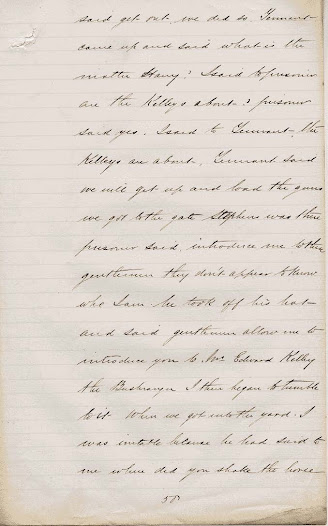 said get out we did so. Tennant
came up and said what is the
matter Harry? I said to prisoner
are the Kelleys about? prisoner
said yes. I said to Tennant, the
Kelleys are about, Tennant said
we will get up and load the guns
we got to the gate Stephens was there
prisoner said, introduce me to these
gentlemen they don't appear to know
who I am. he took off his hat
and said gentlemen allow me to
introduce you to Mr Edward Kelley
the Bushranger I then began to tumble
to it. When we got into the yard. I
was irritable because he had said to
me where did you shake the horse